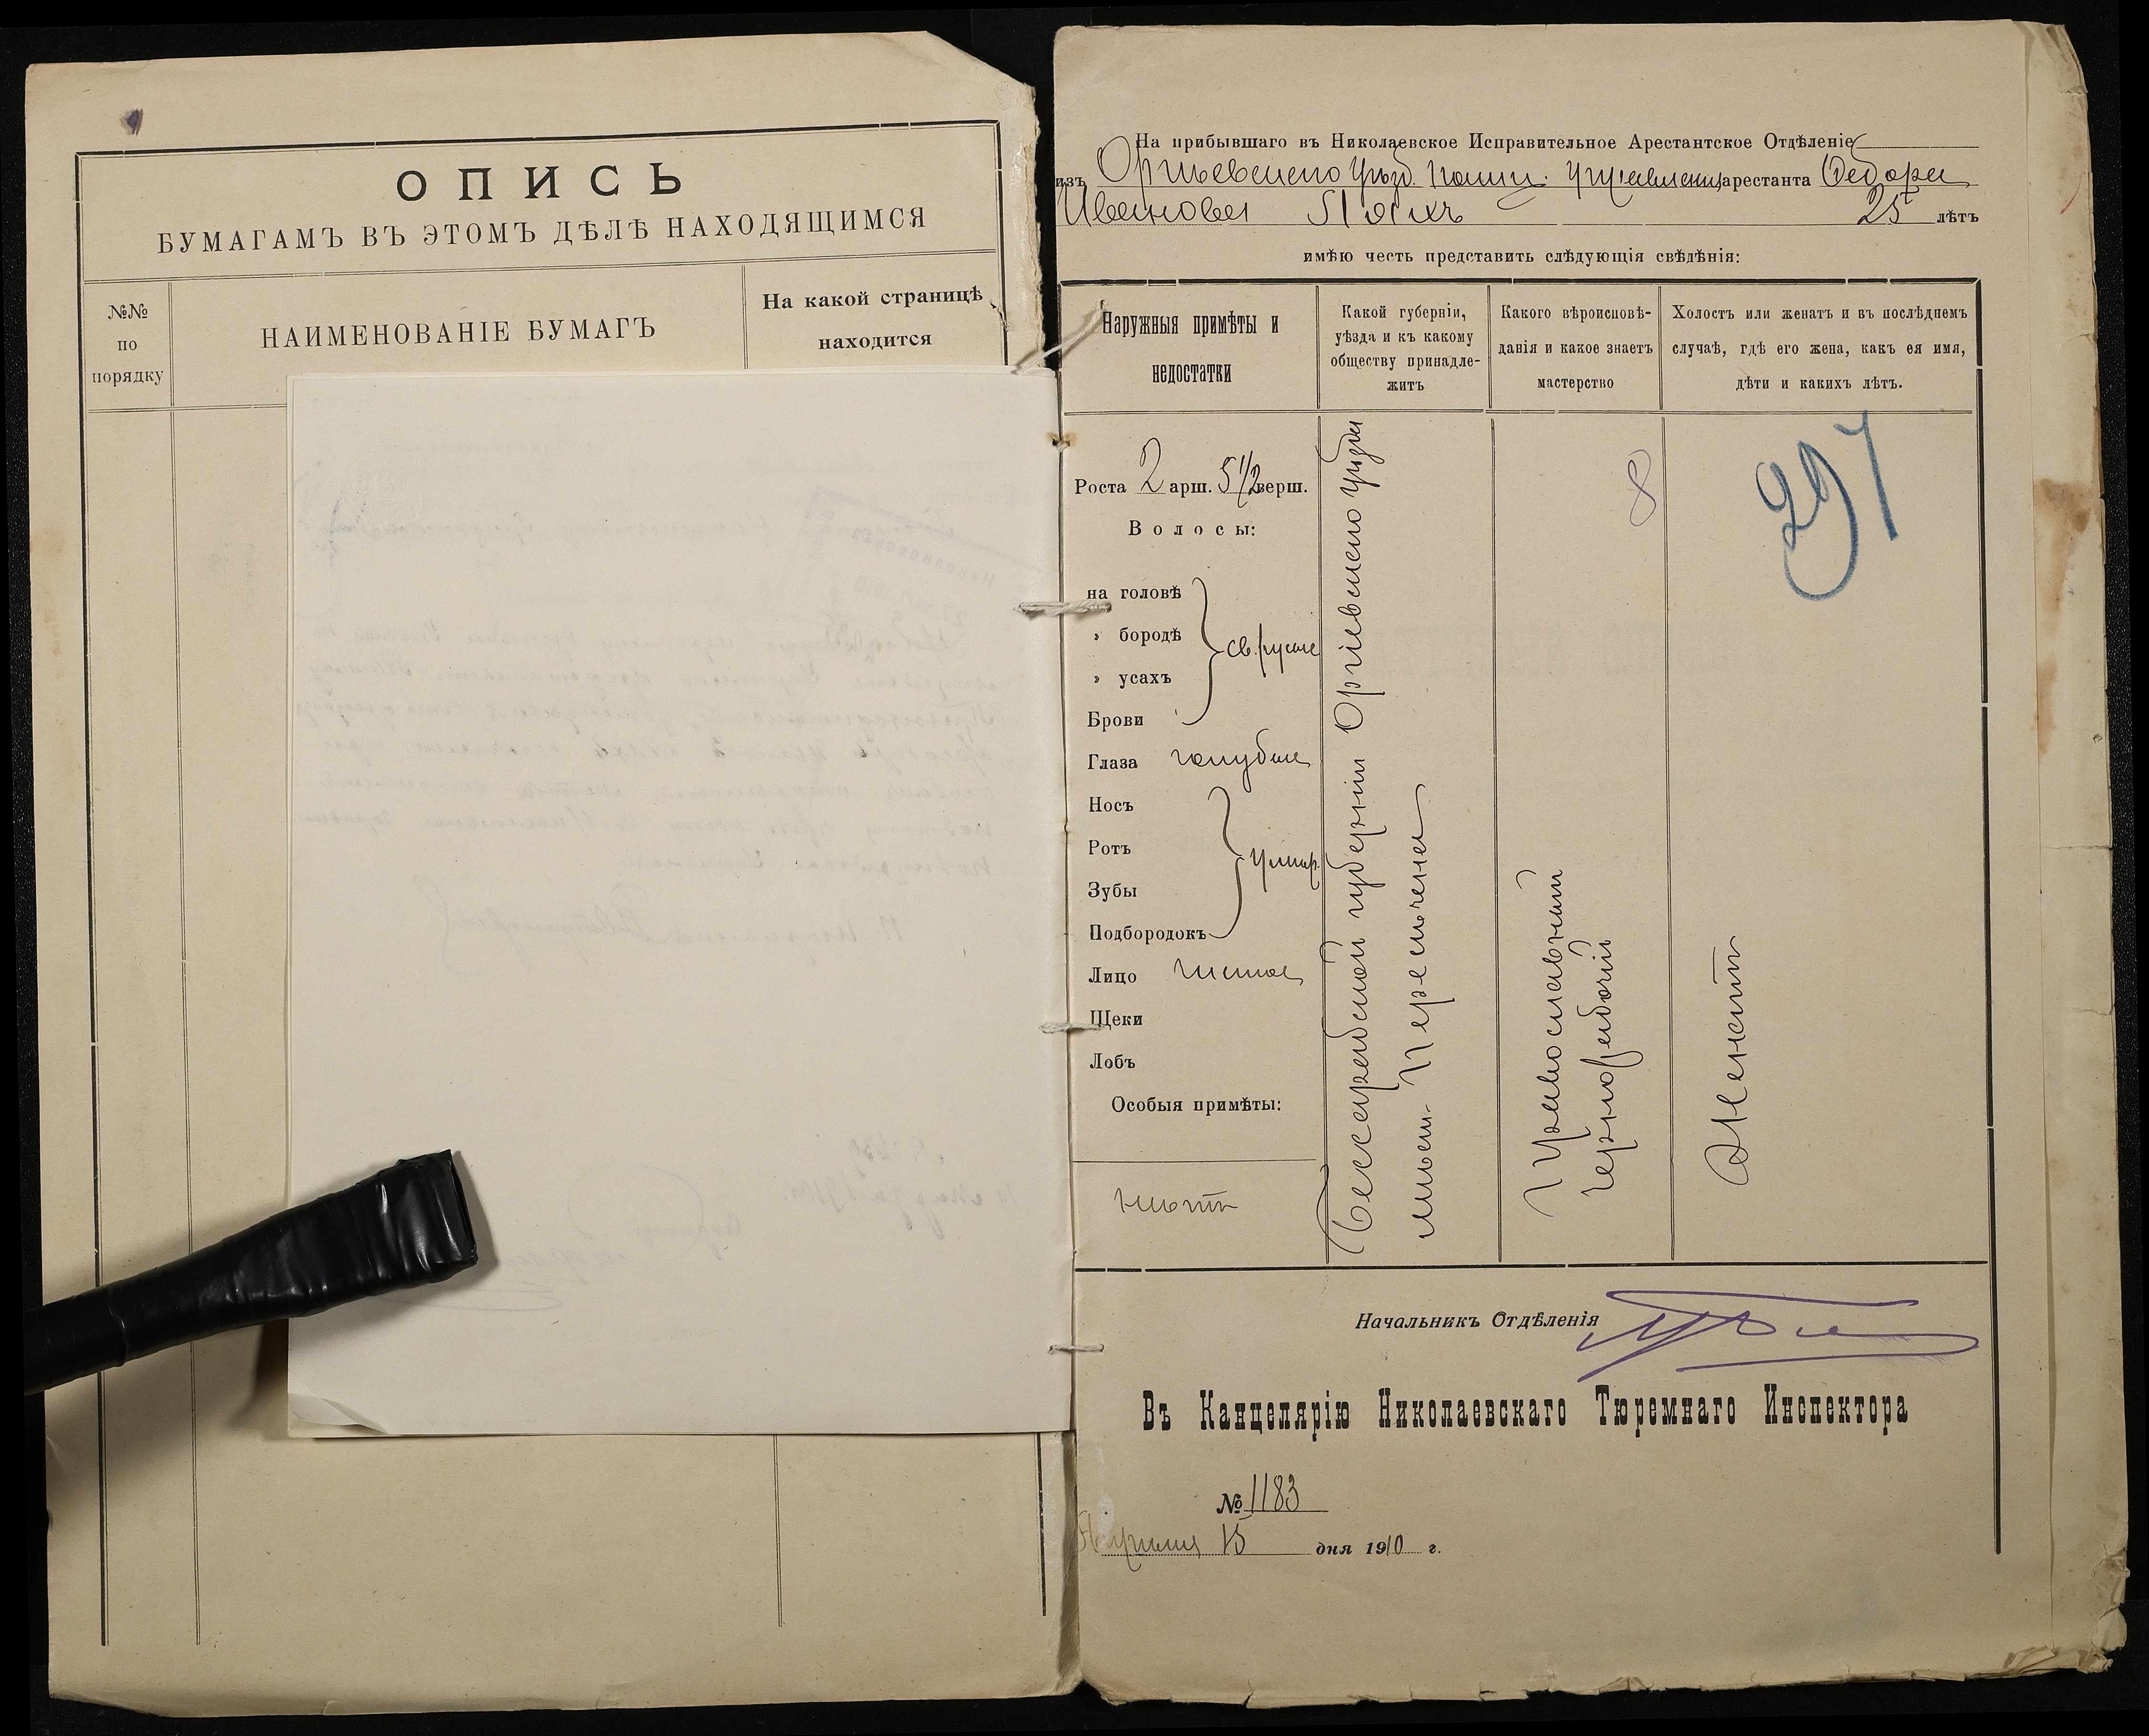 ОПИСЬ
БУМАГАМЪ ВЪ ЭТОМЪ ДѢЛѢ НАХОДЯЩИМСЯ
№№ по порядку
НАИМЕНОВАНІЕ БУМАГЪ
На какой страницѣ находится
На прибывшаго въ Николаевское Исправительное Арестантское Отдѣленіе
изъ Оргѣевскаго Уѣзд. Полиц. Управленія арестанта Ѳедора
Иванова 25 лѣтъ
имѣю честь представить слѣдующія свѣдѣнія:
Наружныя примѣты и
недостатки
Какой губерніи,
уѣзда и къ какому
обществу принадле-
житъ
Какого вѣроисповѣ-
данія и какое знаетъ
мастерство
Холостъ или женатъ и въ послѣднемъ
случаѣ, гдѣ его жена, какъ ея имя,
дѣти и какихъ лѣтъ.
Роста 2 арш. 5 1/2 верш.
Волосы:
на головѣ
» бородѣ
св. русые
» усахъ
Брови
Глаза голубые
Носъ
Ротъ
умѣр.
Зубы
Подбородокъ
Лицо чистое
Щеки
Лобъ
Особыя примѣты:
нѣтъ
Бессарабской губерніи Оргѣевскаго уѣзда
мѣст. Пересѣчена
8
Православный
чернорабочій
297
Женатъ
Начальникъ Отдѣленія
Въ Канцелярію Николаевскаго Тюремнаго Инспектора
№ 1183
Апрѣля 15 дня 1910 г.